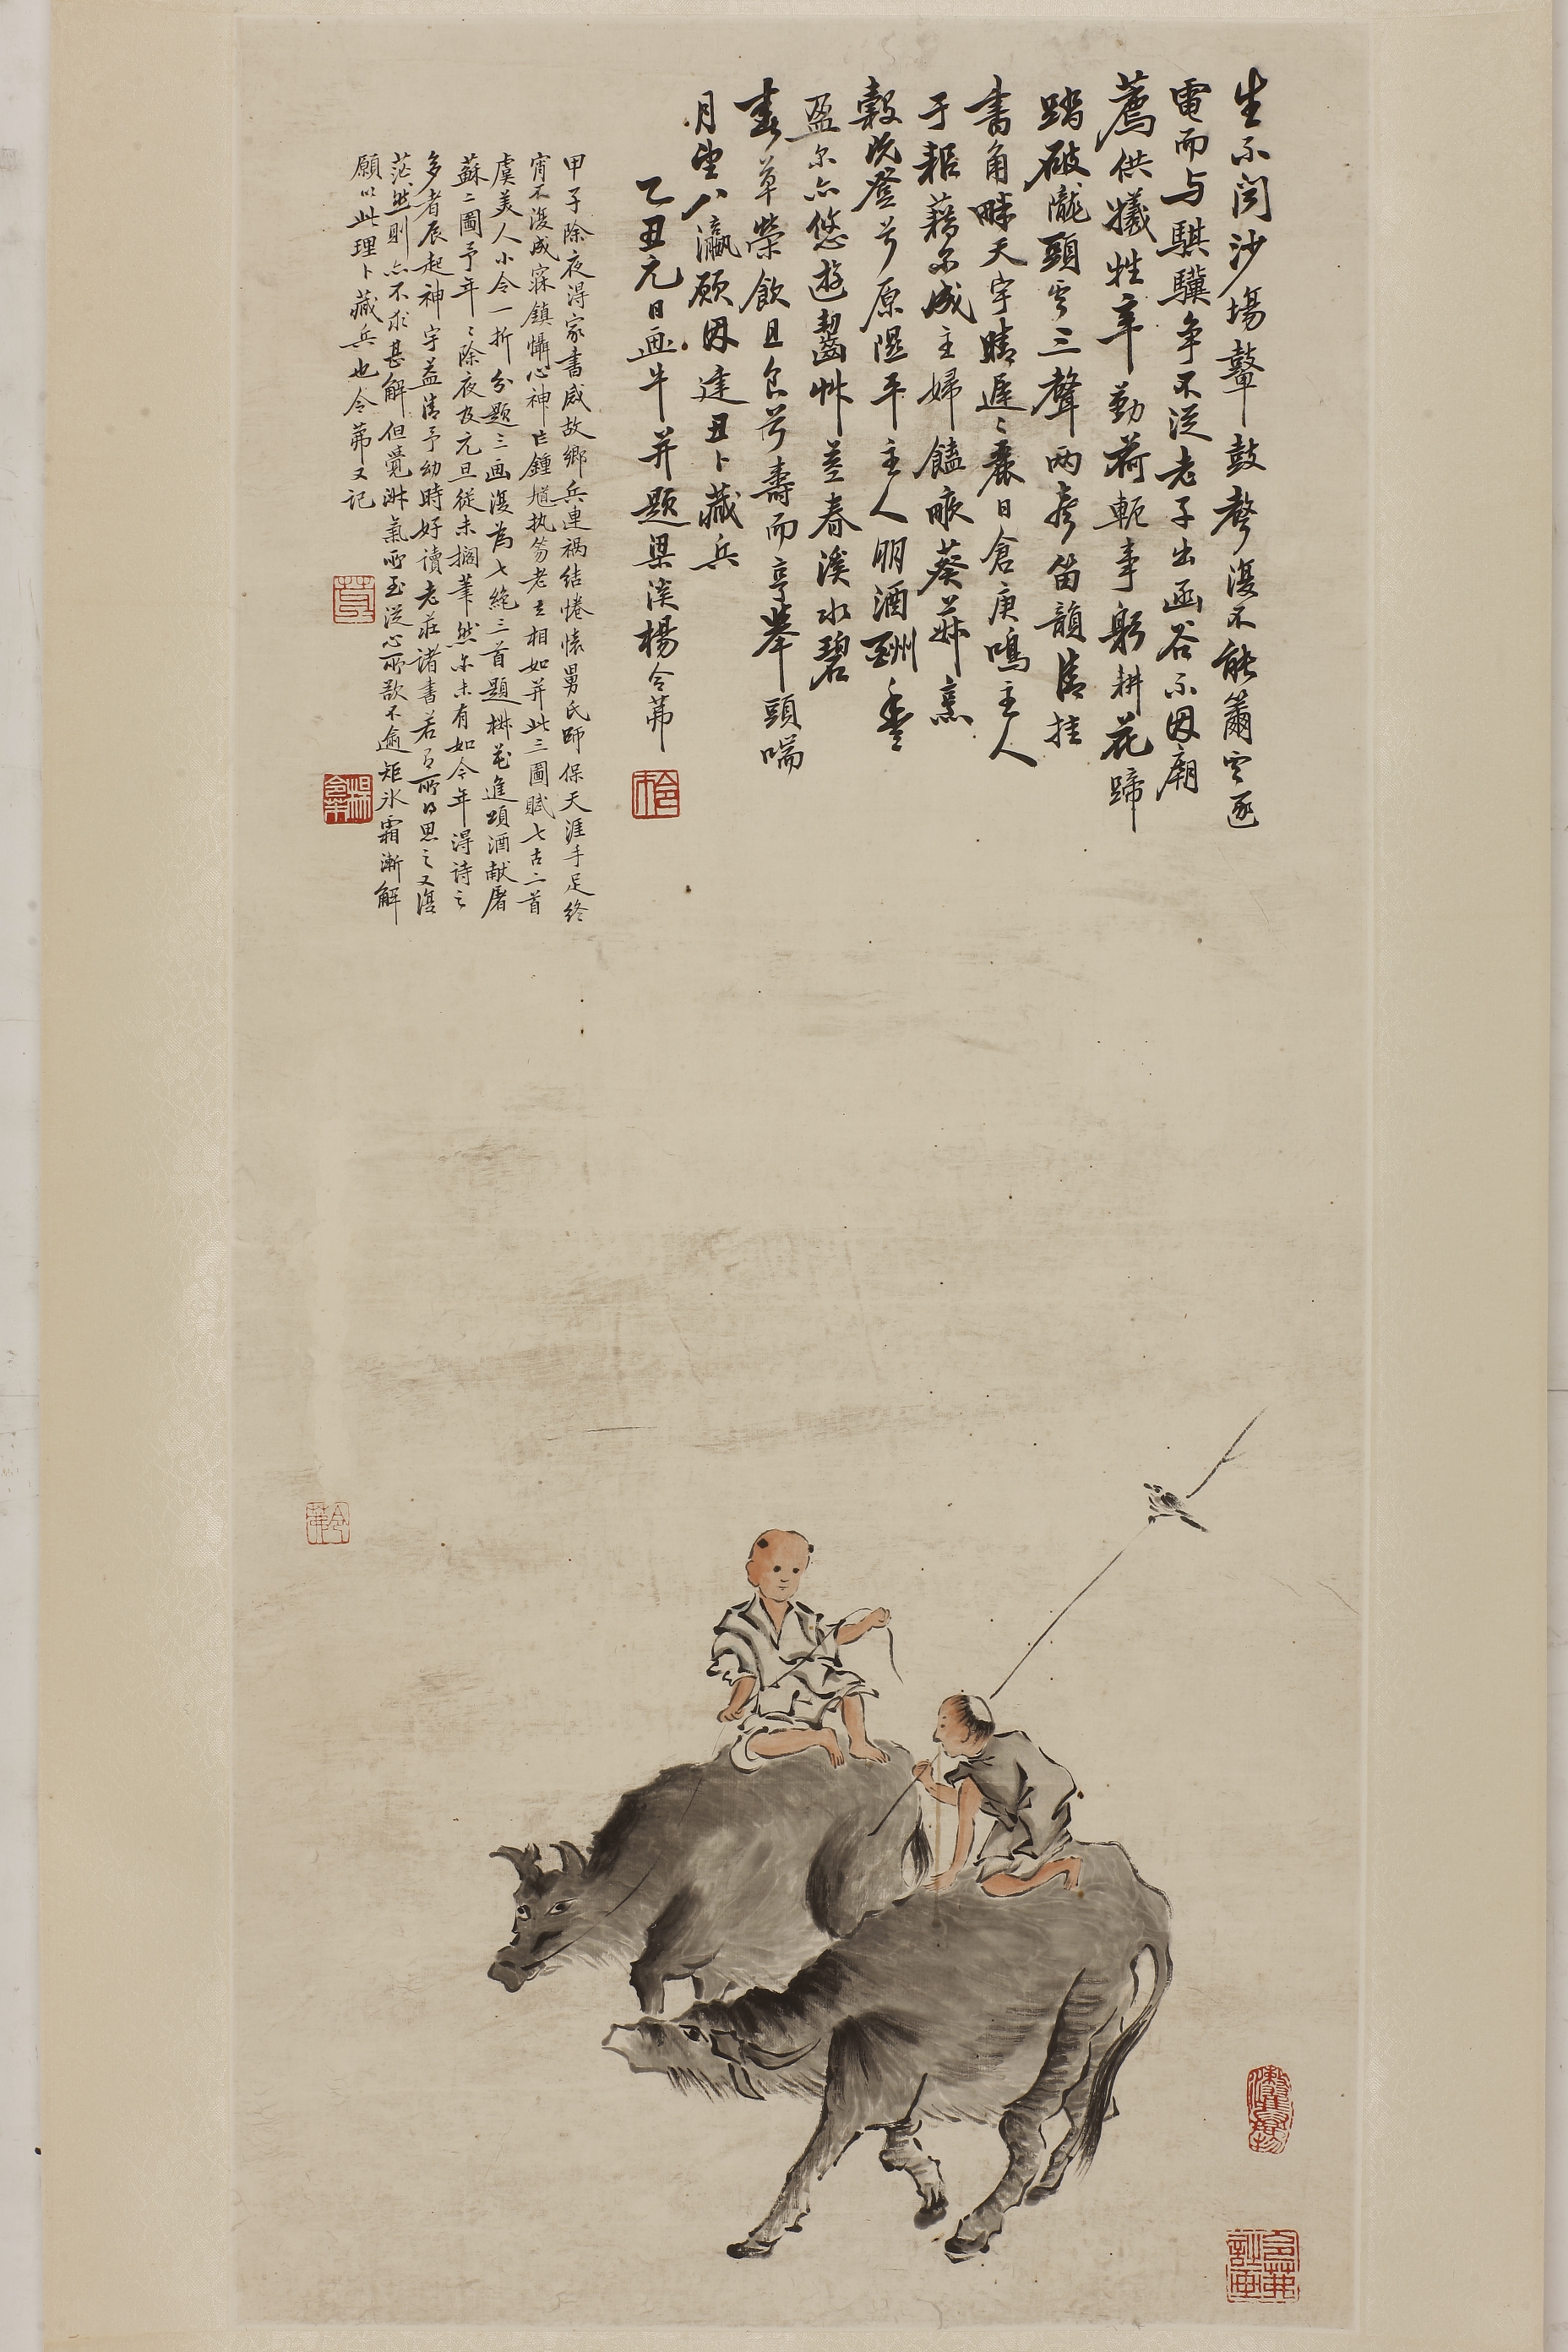 生不闻沙場鼙鼓聲復不能籋雲逐
電而与騏驥争不從老子出函谷不因廟
薦供犧牲辛勤荷軛事躬耕花蹄
踏破隴頭雲三聲兩聲笛韻清挂
書角畔天宇晴遲遲麗日倉庚鳴主人
于耜藉尔成主婦饁畝葵菽烹
穀既登兮原隰平主人朋酒酬豐
盈尔亦悠遊齧艸茎春溪水碧
春草榮飲且食兮壽而亨舉頭喘
月望八瀛願因逢丑卜藏兵
乙丑元日画牛并题梁溪楊令茀
甲子除夜得家書感故鄉兵連禍結惓懐舅氏師保天涯手足終
宵不復成寐鎮懾心神占鍾馗执笏老立相如并此三圖賦七古二首
虞美人小令一折分题三画復為七絶三首题桝花進頌酒献屠
蘇二圖予年年除夜及元旦從未擱筆然尔未有如今年得詩之
多者辰起神宇益清予幼時好讀老莊諸書若有所得思之又復
茫然則亦不求甚解但覺淋氣所至從心所欲不逾矩氷霜漸解
願以此理卜藏兵也令茀又記
令茀
楊令茀
令茀
令茀訂画